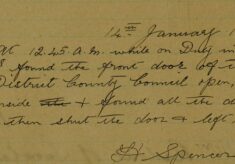 12th January 1
At 12.45 a.m. while on Duty in
I found the front door of t
District County Council open,
side & found all the d
then shut the door & left,
H. Spencer